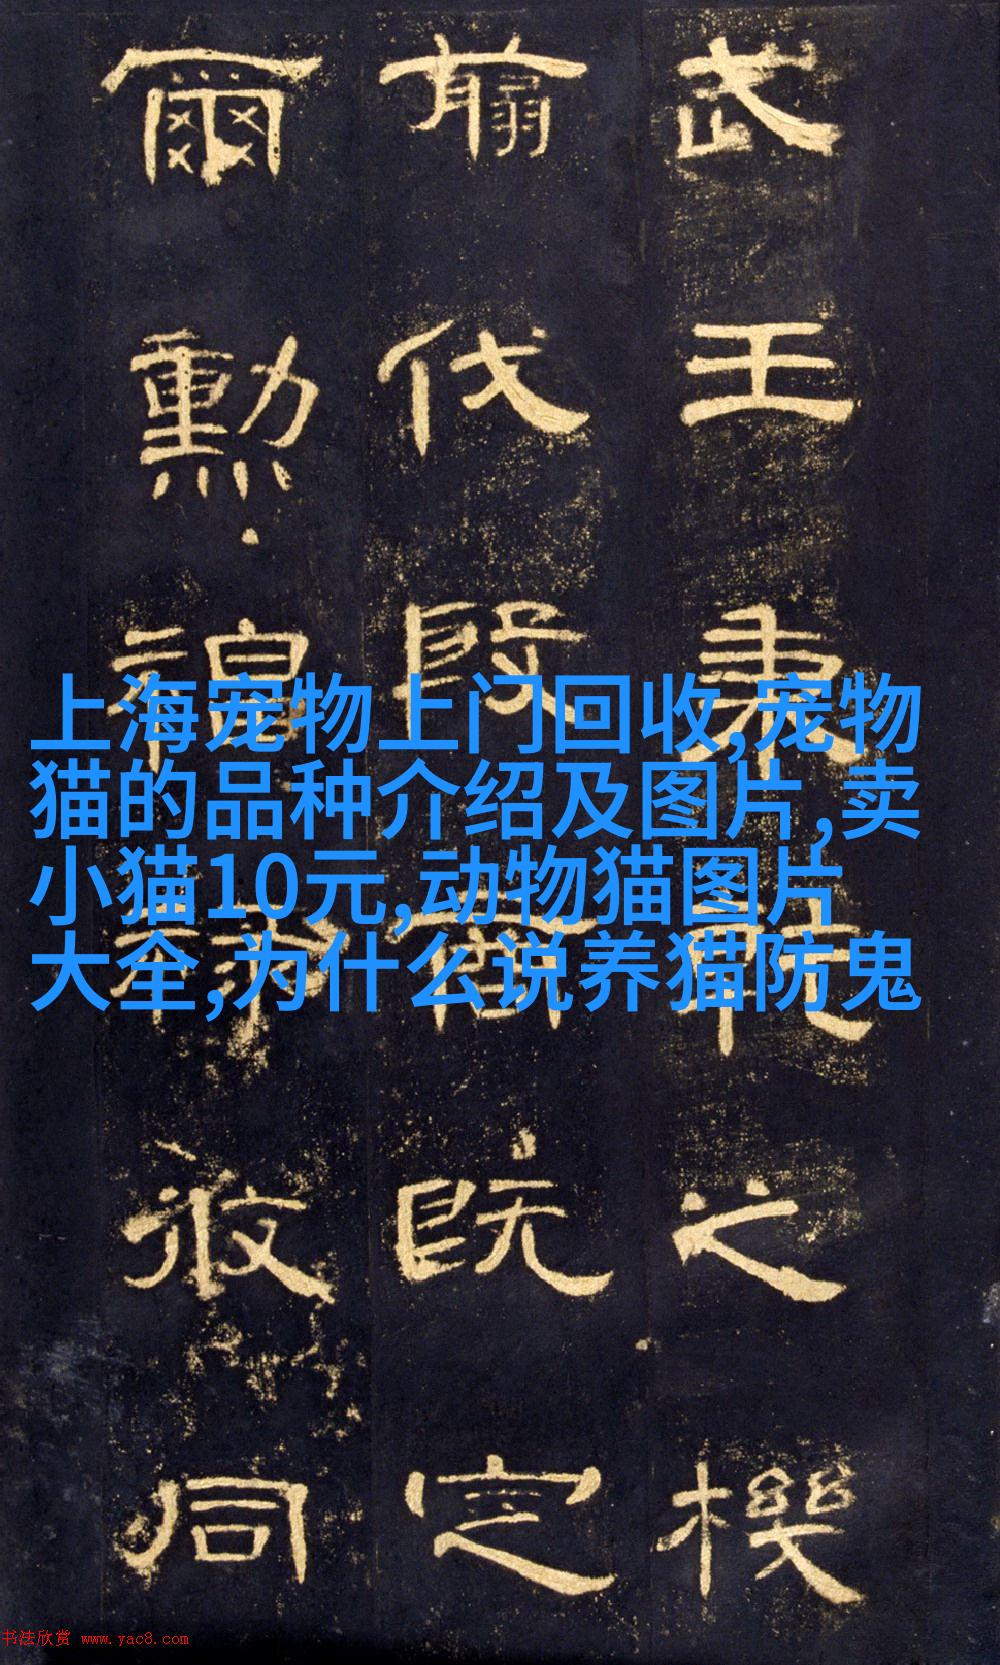 武王秉之機
翦伐殷商既定
爾勲同
上海宠物上门回收,宠物
猫的品种介绍及图片,卖
小猫10元,动物猫图片
大全,为什么说养猫防鬼
书法欣赏 www.yac8.com